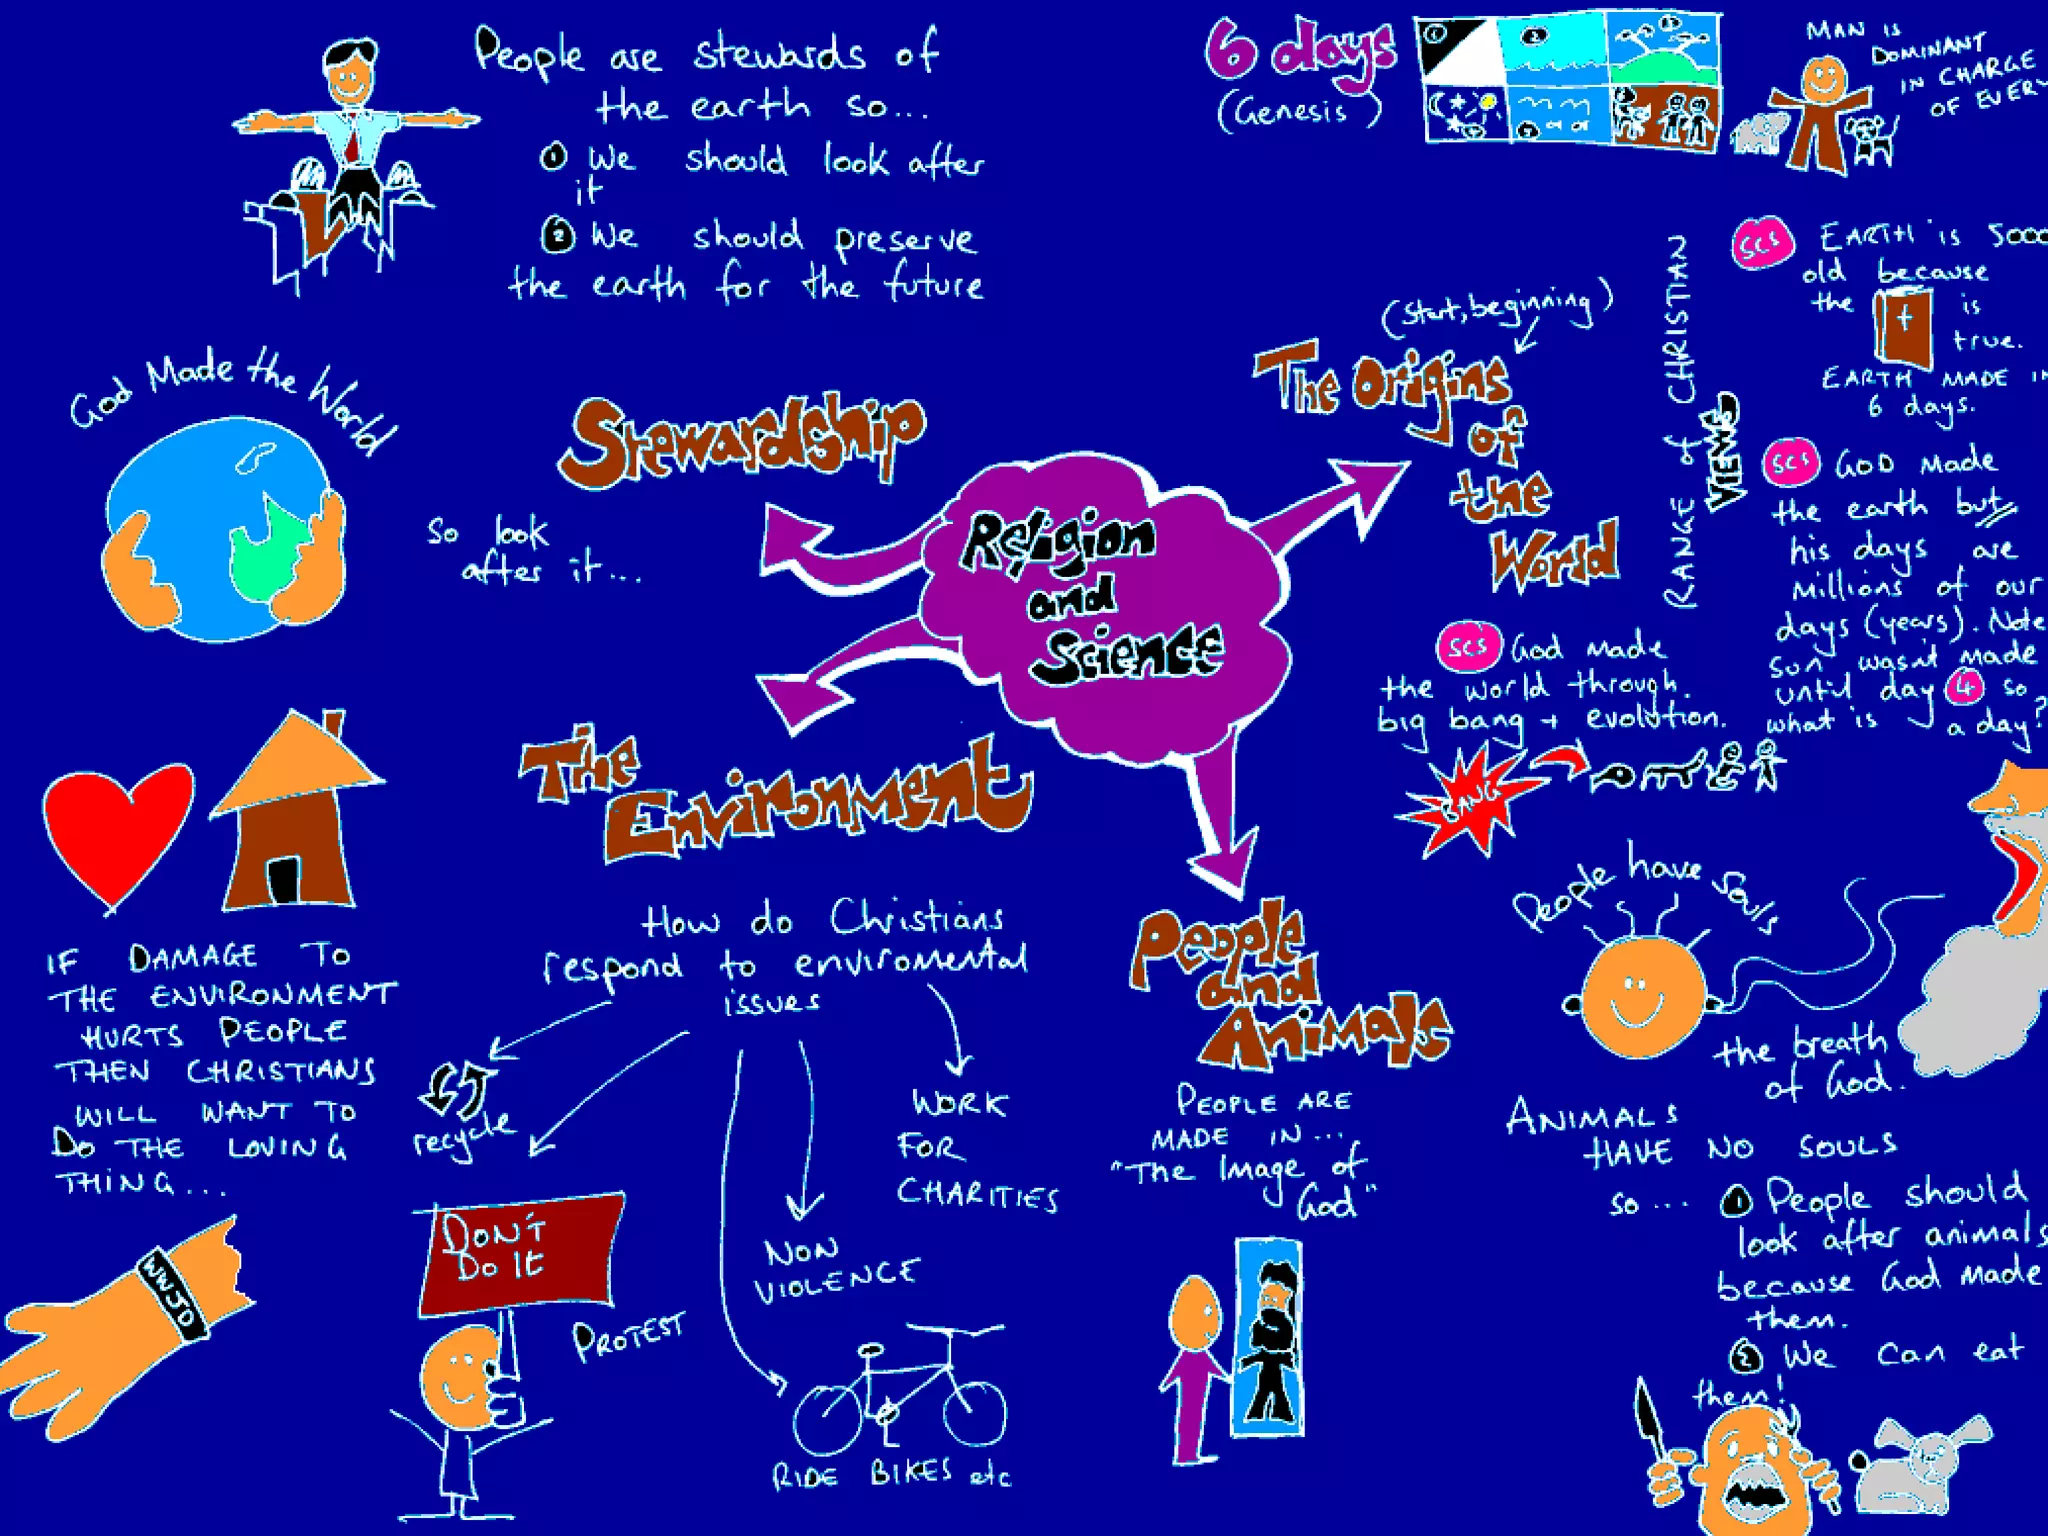 People are stewards of
the earth so...
1 We should look after
it
2 We should preserve
the earth for the future
6 days
(Genesis)
1
2
3
MAN IS
DOMINANT
IN CHARGE
OF EVERY
God Made the World
Stewardship
So look
after it...
(start, beginning)
The Origins
of
the
World
RANGE OF CHRISTIAN
VIEWS
SCS EARTH IS 5000
old because
the is
true.
EARTH MADE IN
6 days.
SCS GOD Made
the earth but
his days are
Millions of our
days (years). Note
sun wasn't made
until day 4 so
what is a day?
SCS God made
the world through.
big bang + evolution.
BANG
Religion
and
Science
The
Environment
How do Christians
respond to enviromental
issues
recycle
DON'T
DO It
PROTEST
NON
VIOLENCE
WORK
FOR
CHARITIES
RIDE BIKES etc
IF DAMAGE TO
THE ENVIRONMENT
HURTS PEOPLE
THEN CHRISTIANS
WILL WANT TO
DO THE LOVING
THING...
WWJD
People
and
Animals
PEOPLE ARE
MADE IN...
"The Image of
God"
People have souls
the breath
of God.
ANIMALS
HAVE NO SOULS
so... 1 People should
look after animals
because God made
them.
2 We can eat
them!